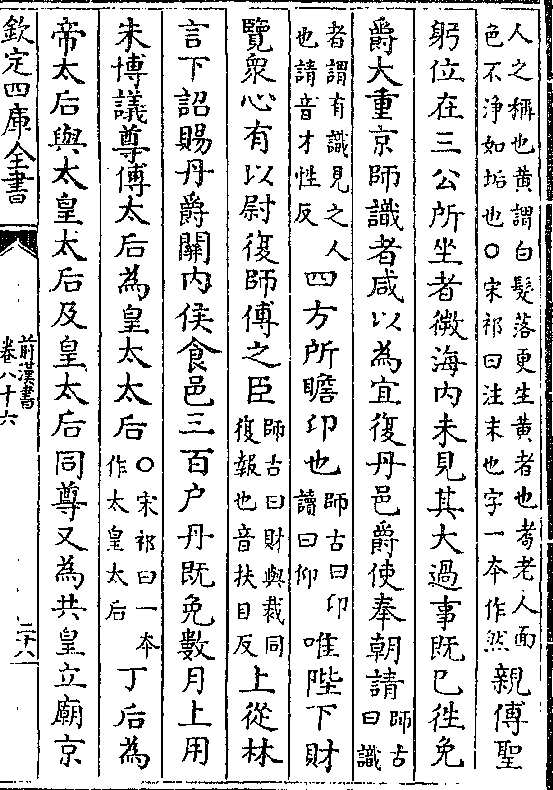 人之稱也黄謂白髮落更生黄者也耉老人面
色不浄如垢也○宋祁曰注末也字一本作然
親傅聖
躬位在三公所坐者微海内未見其大過事既已徃免
爵大重京師識者咸以為宜復丹邑爵使奉朝請
師古
曰識
者謂有識見之人
也請音才性反
四方所瞻卬也
師古曰卬
讀曰仰
唯陛下財
覽衆心有以尉復師傅之臣
師古曰財與裁同
復報也音扶目反
上從林
言下詔賜丹爵關内侯食邑三百户丹既免數月上用
朱博議尊傅太后為皇太太后
○宋祁曰一本
作太皇太后
丁后為
帝太后與太皇太后及皇太后同尊又為共皇立廟京
欽定四庫全書
前漢書
卷八十六
二十八